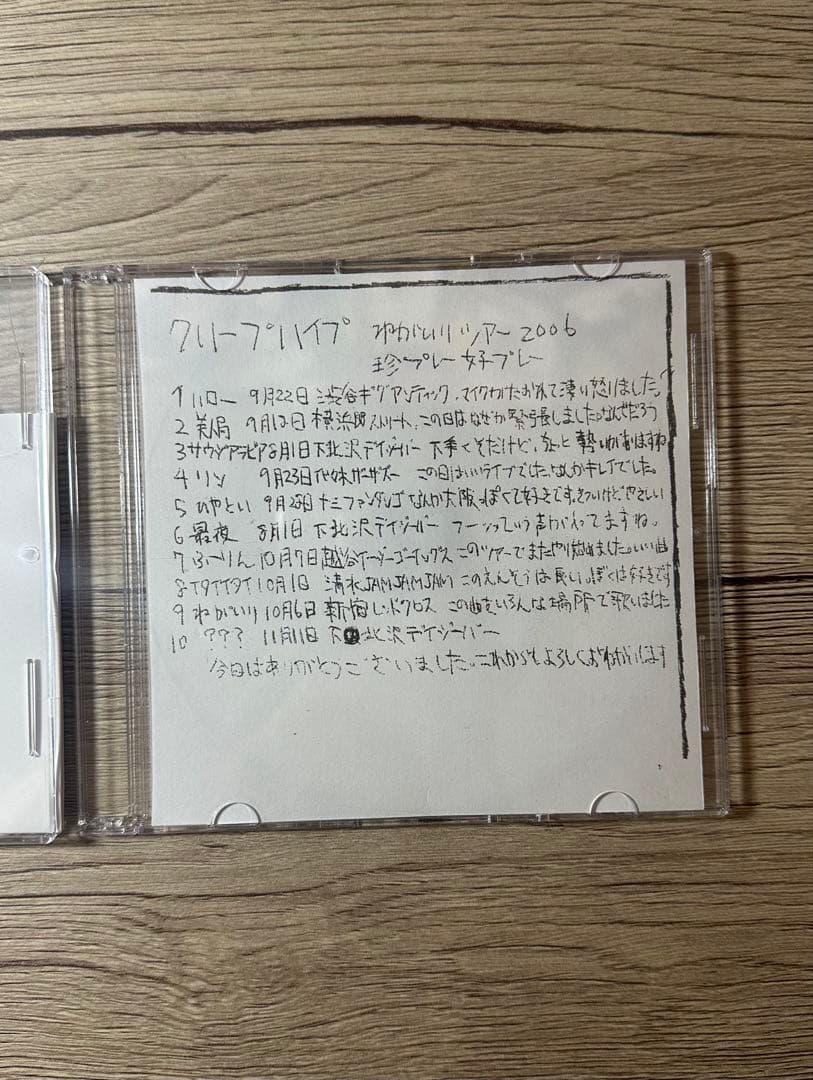 クリープハイプ わがいりツアー2006
珍プレー好プレー
1 ハロー 9月22日 渋谷ギグアンティック、マイクがたおれて凄い怒りました。
2 美局 9月12日 横浜 ストリート、この日はなぜか緊張しました。なんでだろう
3 サウジアラビア 8月1日 下北沢デイジーバー 下手くそだけど、勢いがありますね
4 リン 9月23日 代々木ザーザズー この日はいいライブでした。なんかキレイでした。
5 ひやとい 9月28日 十三ファンダンゴ なんか大阪っぽくて好きです。きついけどやさしい
6 最夜 8月1日 下北沢デイジーバー フーっていう声が入ってますね。
7 ふーりん 10月7日 越谷イージーゴーイングス このツアーでまたやり始めました。いい曲
8 イタイイタイ 10月1日 清水JAMJAMJAM このえんそうは長い。ぼくは好きです
9 わがいり 10月6日 新宿レッドクロス この曲をいろんな場所で歌いました
10 ??? 11月11日 下北沢デイジーバー
今日はありがとうございました。これからもよろしくおねがいします